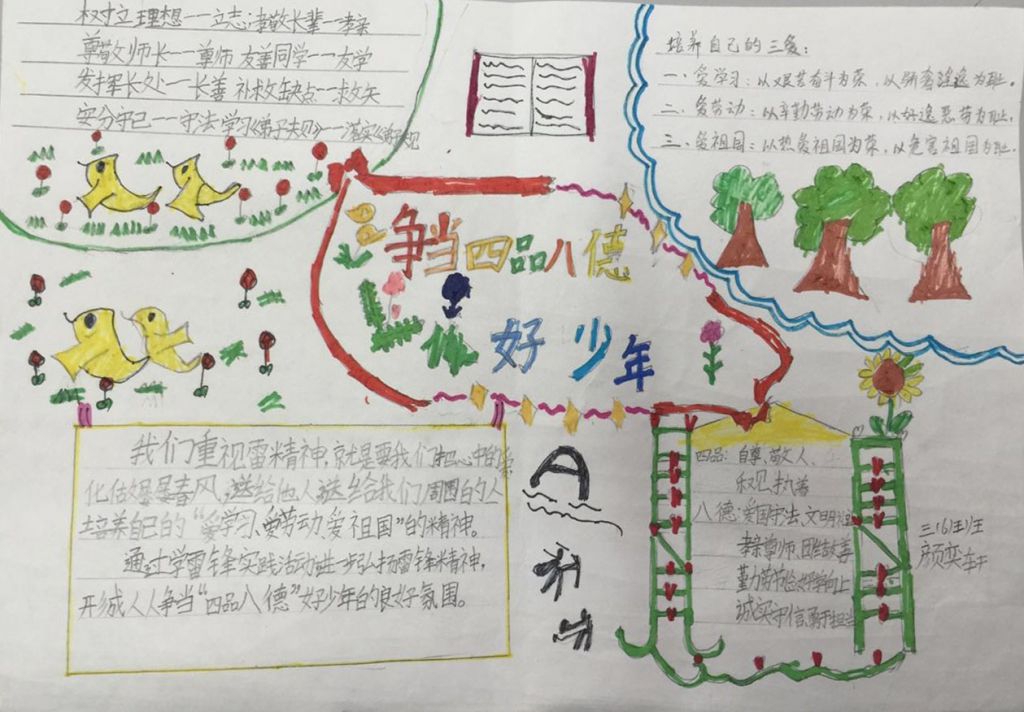 树立理想——立志;孝敬长辈—孝亲
尊敬师长——尊师 友善同学——友学
发挥长处——长善 补救缺点—救失
安分守己——守法;学习《弟子规》——落实《弟子规》
培养自己的三爱:
一、爱学习:以艰苦奋斗为荣,以骄奢淫逸为耻。
二、爱劳动:以辛勤劳动为荣,以好逸恶劳为耻,
三、爱祖国:以热爱祖国为荣,以危害祖国为耻。
争当四品八德
做好少年
我们重视雷精神,就是要我们把心中的爱
化做春风,送给他人送给我们周围的人
培养自己的“爱学习、爱劳动、爱祖国”的精神。
通过学雷锋实践活动进一步弘扬雷锋精神,
形成人人争当“四品八德”好少年的良好氛围。
四品:自尊、敬人、
八德:爱国守法、文明
孝亲尊师、团结友善
勤劳节俭好学向上
诚实守信勇于担当
三(6)班